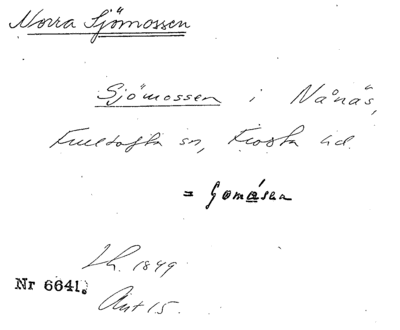 Norra Sjömossen
Sjömossen i Nånäs,
Fulltofta sn, Frosta hd.
= Gomåsen
Lh. 1849
Nr 6641.
Akt 15.